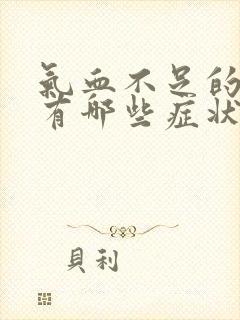 氣血不足的
有哪些症狀
貝利